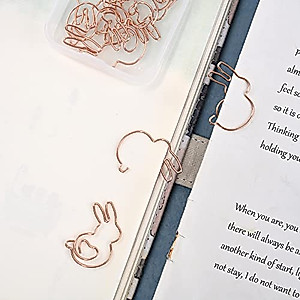 Promise
also
feel so
so it's
Thinking
holding your
When you are, you
there will always be a
another kind of start, li
not stay, I do not want to